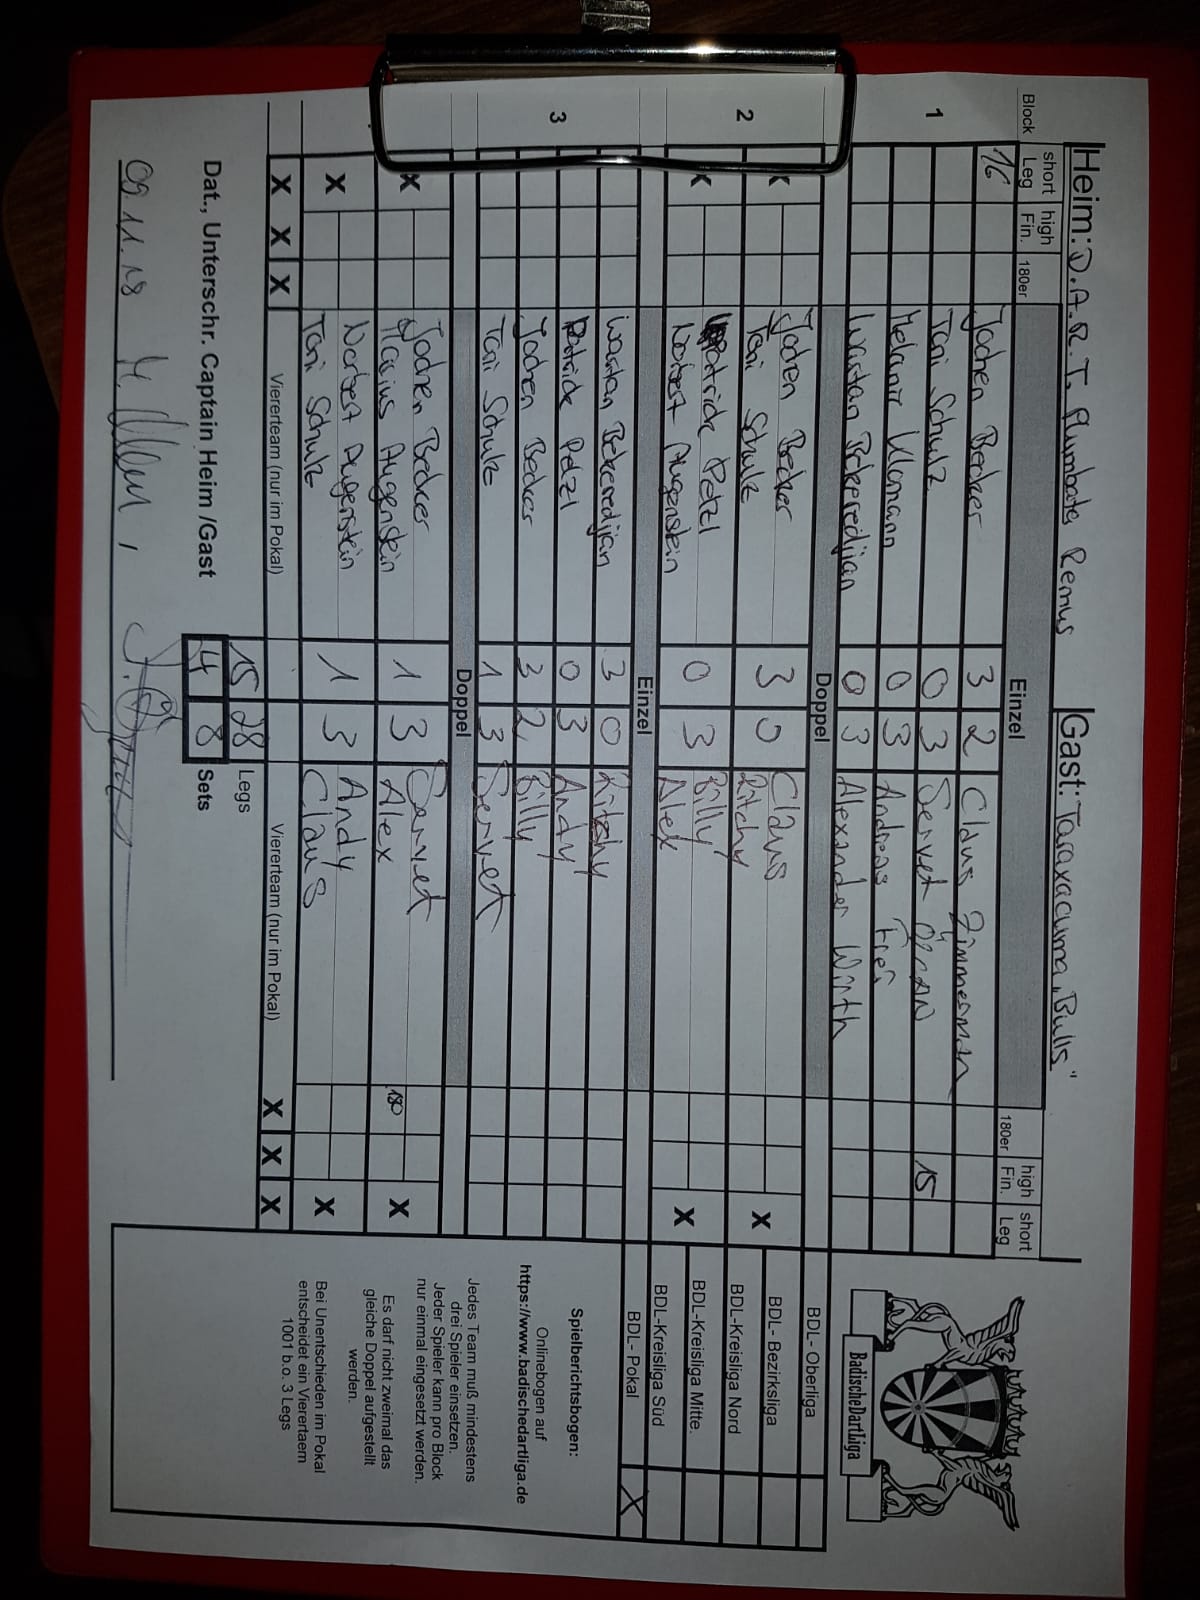 Heim: D.A.R.T. Plumbata Remus Gast: Taraxacuma „Bulls"
Block short Leg high Fin. 180er Einzel 180er high Fin. short Leg
1
16 Jochen Becker 3 2 Claus Zimmerman
Toni Schulz 0 3 Servet 15
Melanie 0 3 Andreas Frei
Wartan Bekeredjian 0 3 Alexander Wirth
Doppel
2
X Jochen Becker 3 0 Claus X
Toni Schulz Ritchy
X Patrick Petzl 0 3 Billy X
Norbert Augenstein Alex
Einzel
3
Wartan Bekeredjian 3 0 Ritchy
Patrick Petzl 0 3 Andy
Jochen Becker 3 2 Billy
Toni Schulz 1 3 Servet
Doppel
X Jochen Becker 1 3 Servet X
Marius Augenstein Alex 180
X Norbert Augenstein 1 3 Andy X
Toni Schulz Claus
X X X Viererteam (nur im Pokal) Viererteam (nur im Pokal) X X X
15 28 Legs
4 8 Sets
Dat., Unterschr. Captain Heim /Gast
09.11.18
BadischeDartLiga
BDL- Oberliga
BDL- Bezirksliga
BDL-Kreisliga Nord
BDL-Kreisliga Mitte.
BDL-Kreisliga Süd
BDL- Pokal X
Spielberichtsbogen:
Onlinebogen auf
https://www.badischedartliga.de
Jedes Team muß mindestens
drei Spieler einsetzen.
Jeder Spieler kann pro Block
nur einmal eingesetzt werden.
Es darf nicht zweimal das
gleiche Doppel aufgestellt
werden.
Bei Unentschieden im Pokal
entscheidet ein Vierertaem
1001 b.o. 3 Legs